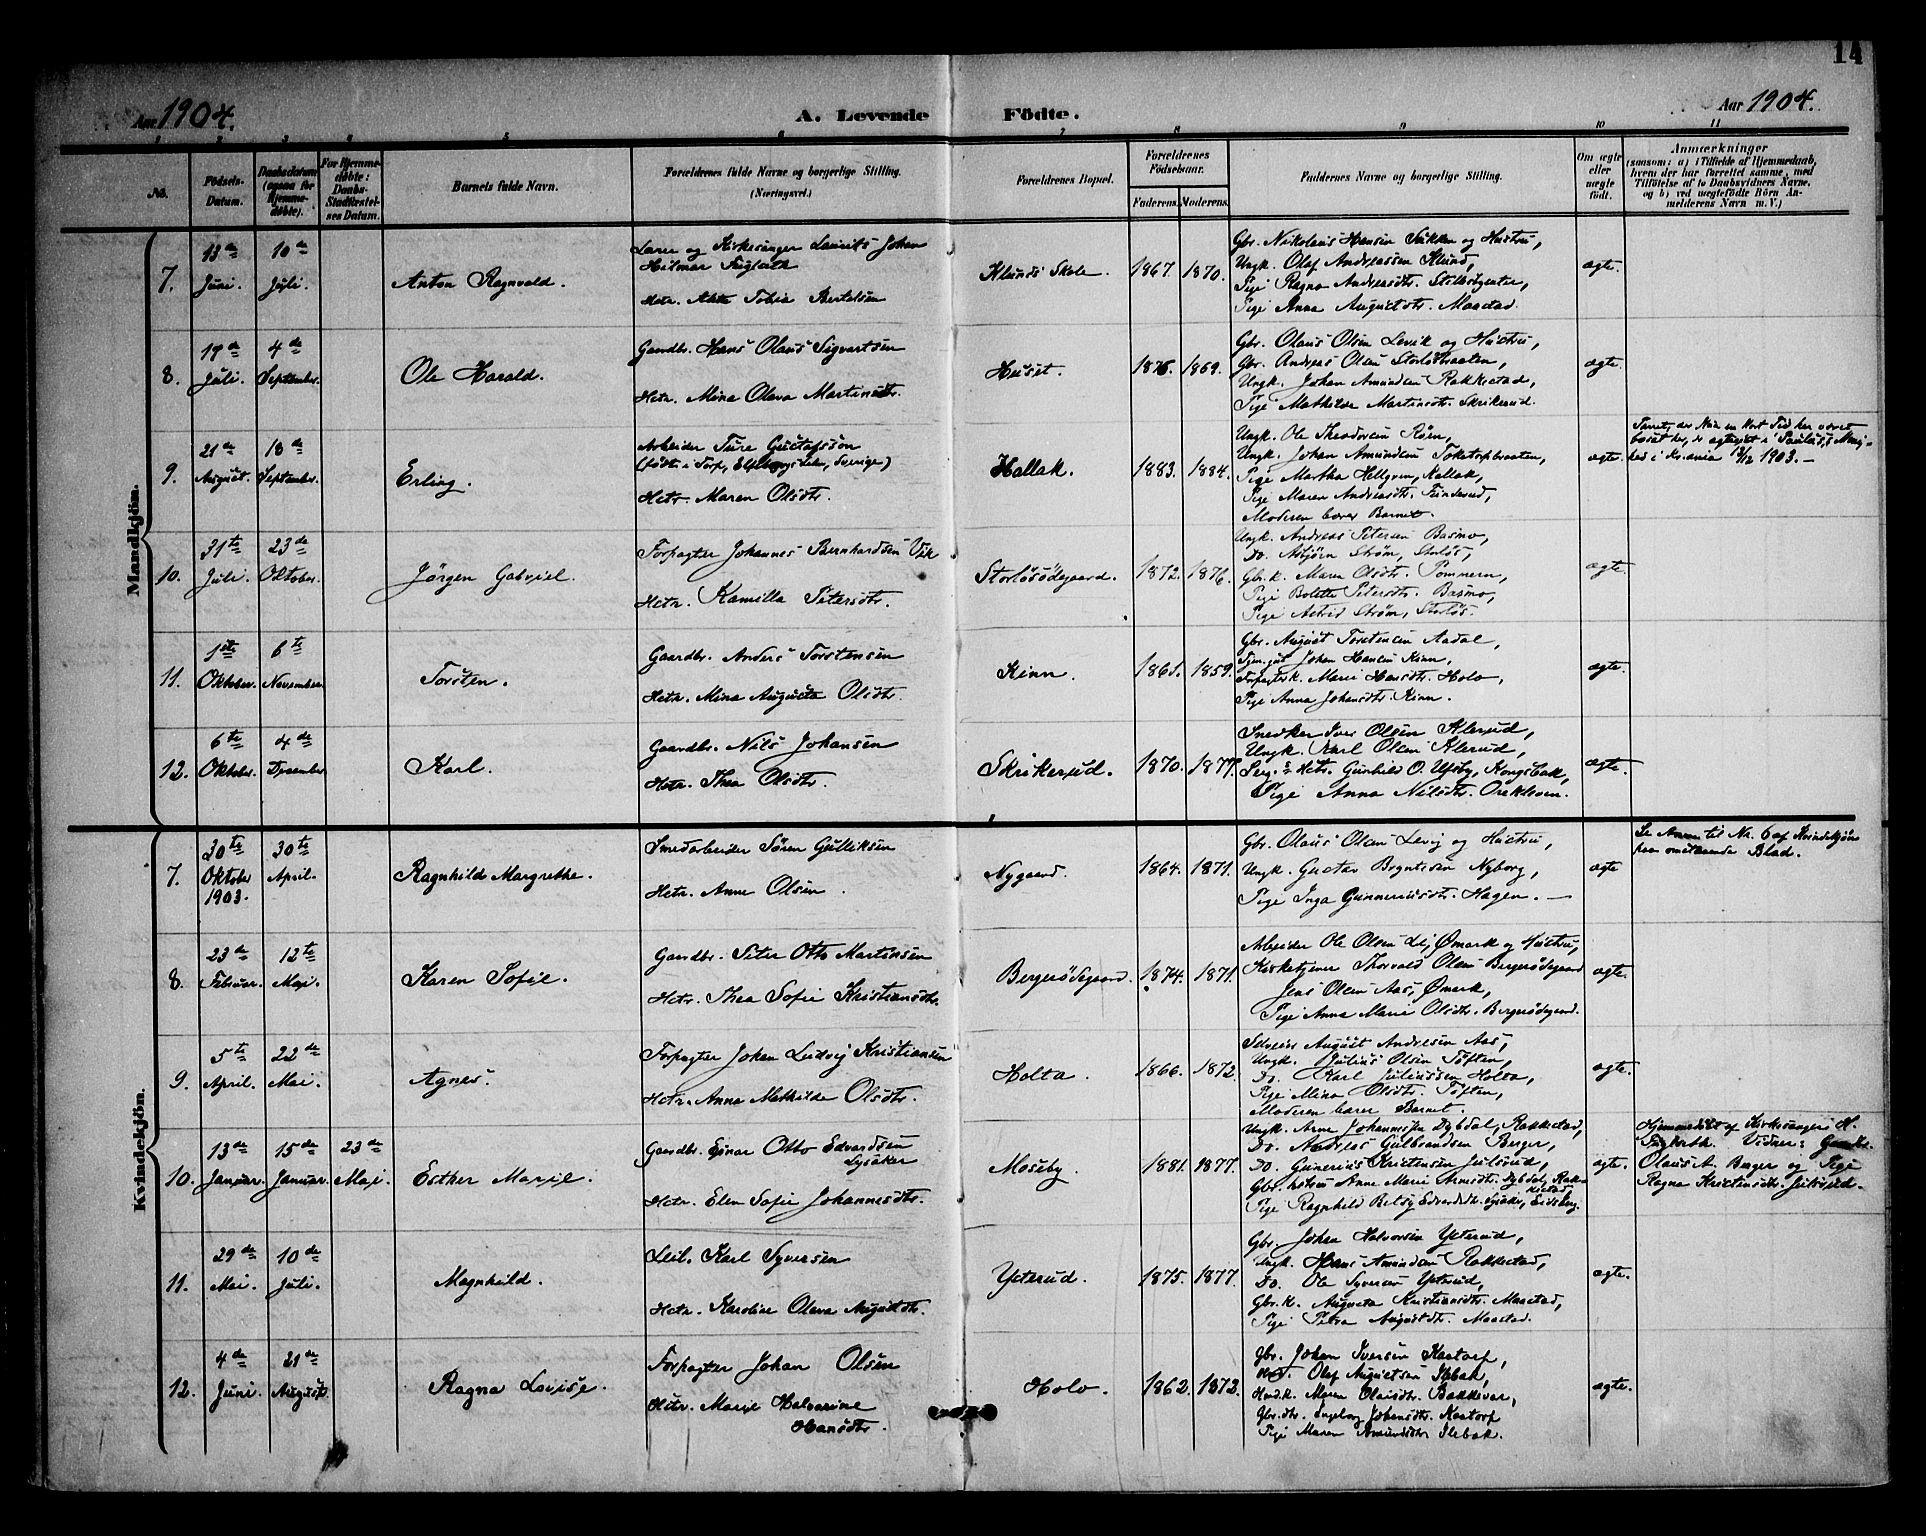 14
Aar 1904.
A. Levende Födte.
Aar 1904.
1 2 3 4 5 6 7 8 9 10 11
No.
Födsels-Datum.
Daabsdatum (ogsaa for Hjemme-döbte).
For Hjemme-döbte: Daabs-Stadfæstel-ses Datum.
Barnets fulde Navn.
Forældrenes fulde Navne og borgerlige Stilling. (Næringsvei.)
Forældrenes Bopæl.
Forældrenes Födselsaar.
Faderens. Moderens.
Faddernes Navne og borgerlige Stilling.
Om ægte eller uægte födt.
Anmærkninger (saasom: a) i Tilfælde af Hjemmedaab, hvem der har forrettet samme, med Tilföielse af to Daabsvidners Navne, og b) ved uægtefödte Börn An-melderens Navn m. V.)
Mandkjön.
7. 13de Juni. 10de Juli. Anton Ragnvald.
Lærer og Kirkesanger Laurits Johan
Hilmar
Hstr. Tobia Bertelsen
Klunds Skole. 1867. 1870.
Gbr. Nikolaus Hansen og Hustru,
Ungk. Olaf Andreassen Klund,
Pige Ragna Andreasdtr.
Pige Anna Augustdtr. Maastad.
ægte.
8. 19de Juli. 4de September. Ole Harald.
Gaardbr. Hans Olaus Sigvartsen
Hstr. Mina Olava Martinsdtr.
Huset. 1875. 1869.
Gbr. Olaus Olsen Levik og Hustru,
Gbr. Andreas Olsen
Ungk. Johan Amundsen Rakkestad,
Pige Mathilde Martinsdtr. Skrikerud.
ægte.
9. 21de August. 18de September. Erling.
Arbeider Ture Gustafsson
(födt i Torp, Elfsborgs län, Sverige)
Hstr. Maren Olsdtr.
Hallak. 1883. 1884.
Ungk. Ole Theodorsen Röen,
Ungk. Johan Amundsen
Pige Martha Hellgren, Hallak,
Pige Maren Andreasdtr.
Moderen bærer Barnet.
ægte.
bosat her, er ægteviet i
i Kr.ania 13/12 1903.—
10. 31te Juli. 23de Oktober. Jörgen Gabriel.
Forpagter Johannes Bernhardsen Vik
Hstr. Kamilla Petersdtr.
Storlösödegaard. 1872. 1876.
Ungk. Andreas Petersen Basmo,
Do. Asbjörn Ström, Storlös,
Gbr.k. Maren Olsdtr. Pommern,
Pige Bolette Petersdtr. Basmo,
Pige Astrid Ström, Storlös.
ægte.
11. 1ste Oktober. 6te November. Torsten.
Gaardbr. Anders Torstensen
Hstr. Mina Augusta Olsdtr.
Kinn. 1861. 1859.
Gbr. August Torstensen Aadal,
Johan Hansen Kinn,
Forpagterk. Marie Hansdtr. Holo,
Pige Anna Johansdtr. Kinn.
ægte.
12. 6te Oktober. 4de Desember. Karl.
Gaardbr. Nils Johansen
Hstr. Thea Olsdtr.
Skrikerud. 1870. 1877.
Snedker Iver Olsen Klerud,
Ungk. Karl Olsen Klerud,
Hstr. Gunhild O. Ufsby, Kongsbak,
Pige Anna Nilsdtr. Orekleven.
ægte.
Kvindekjön.
7. 30te Oktober 1903. 30te April. Ragnhild Margrethe.
Smedarbeider Sören Gulliksen
Hstr. Anne Olsen.
Nygaard. 1864. 1871.
Gbr. Olaus Olsen Levig og Hustru,
Ungk. Gustav Bryntesen Nyborg,
Pige Inga Gunneriusdtr. Hagen.—
ægte
Se Anm. til Nr. 6 af Kvindekjön
paa omstaaende Blad.
8. 23de Februar. 12te Mai. Karen Sofie.
Gaardbr. Peter Otto Martinsen
Hstr. Thea Sofie Kristiansdtr.
Bergerödegaard. 1874. 1871.
Arbeider Ole Olsen Lij, Ømark og Hustru,
Kirketjener Thorvald Olsen Bergerödegaard
Jens Olsen Aas, Ømark,
Pige Anna Marie Olsdtr. Bergerödegaard.
ægte.
9. 5te April. 22de Mai. Agnes.
Forpagter Johan Ludvig Kristiansen
Hstr. Anna Mathilde Olsdtr.
Holta. 1866. 1872.
Selveier August Andresen Aas,
Ungk. Julius Olsen Töften,
Do. Karl Juliussen Holta,
Pige Mina Olsdtr. Töften,
Moderen bærer Barnet.
ægte.
10. 13de Januar. 15de Januar. 23de Mai. Esther Marie.
Gaardbr. Einar Otto Edvardsen
Lysaker
Hstr. Elen Sofie Johannesdtr.
Moseby. 1881. 1877.
Ungk. Arne Johannessen Dybdal, Rakkestad,
Do. Andreas Gulbrandsen Berger,
Do. Gunerius Kristensen Julsrud,
Gbr. hstru Anne Marie Arnesdtr. Dybdal, Rak-
kestad,
Pige Ragnhild Betsy Edvardsdtr. Lysaker, Eidsberg.
ægte.
Hjemmedöbt af Kirkesanger L. H.
Vidner: Gaardbr.
Olaus A. Berger og Pige
Ragna Kristensdtr. Julsrud.
11. 29de Mai. 10de Juli. Magnhild.
Leil. Karl Syversen
Hstr. Karoline Olava Augustdtr.
Ysterud. 1875. 1877.
Gbr. Johan Halvorsen Ysterud,
Ungk. Hans Amundsen Rakkestad,
Do. Ole Syversen Ysterud,
Gbr.k. Augusta Kristiansdtr. Maastad,
Pige Petra Augustdtr. Maastad.
ægte.
12. 4de Juni. 21de August. Ragna Lovise.
Forpagter Johan Olsen
Hstr. Marie Halvorine
Hansdtr.
Holo. 1862. 1873.
Gbr. Johan Iversen Kaatorp,
Olaf Augustsen Ilebæk,
Hmd.k. Maren Olausdtr. Bakkevar,
Gbr.dtr. Ingeborg Johansdtr. Kaatorp
Pige Maren Amundsdtr. Ilebæk.
ægte.